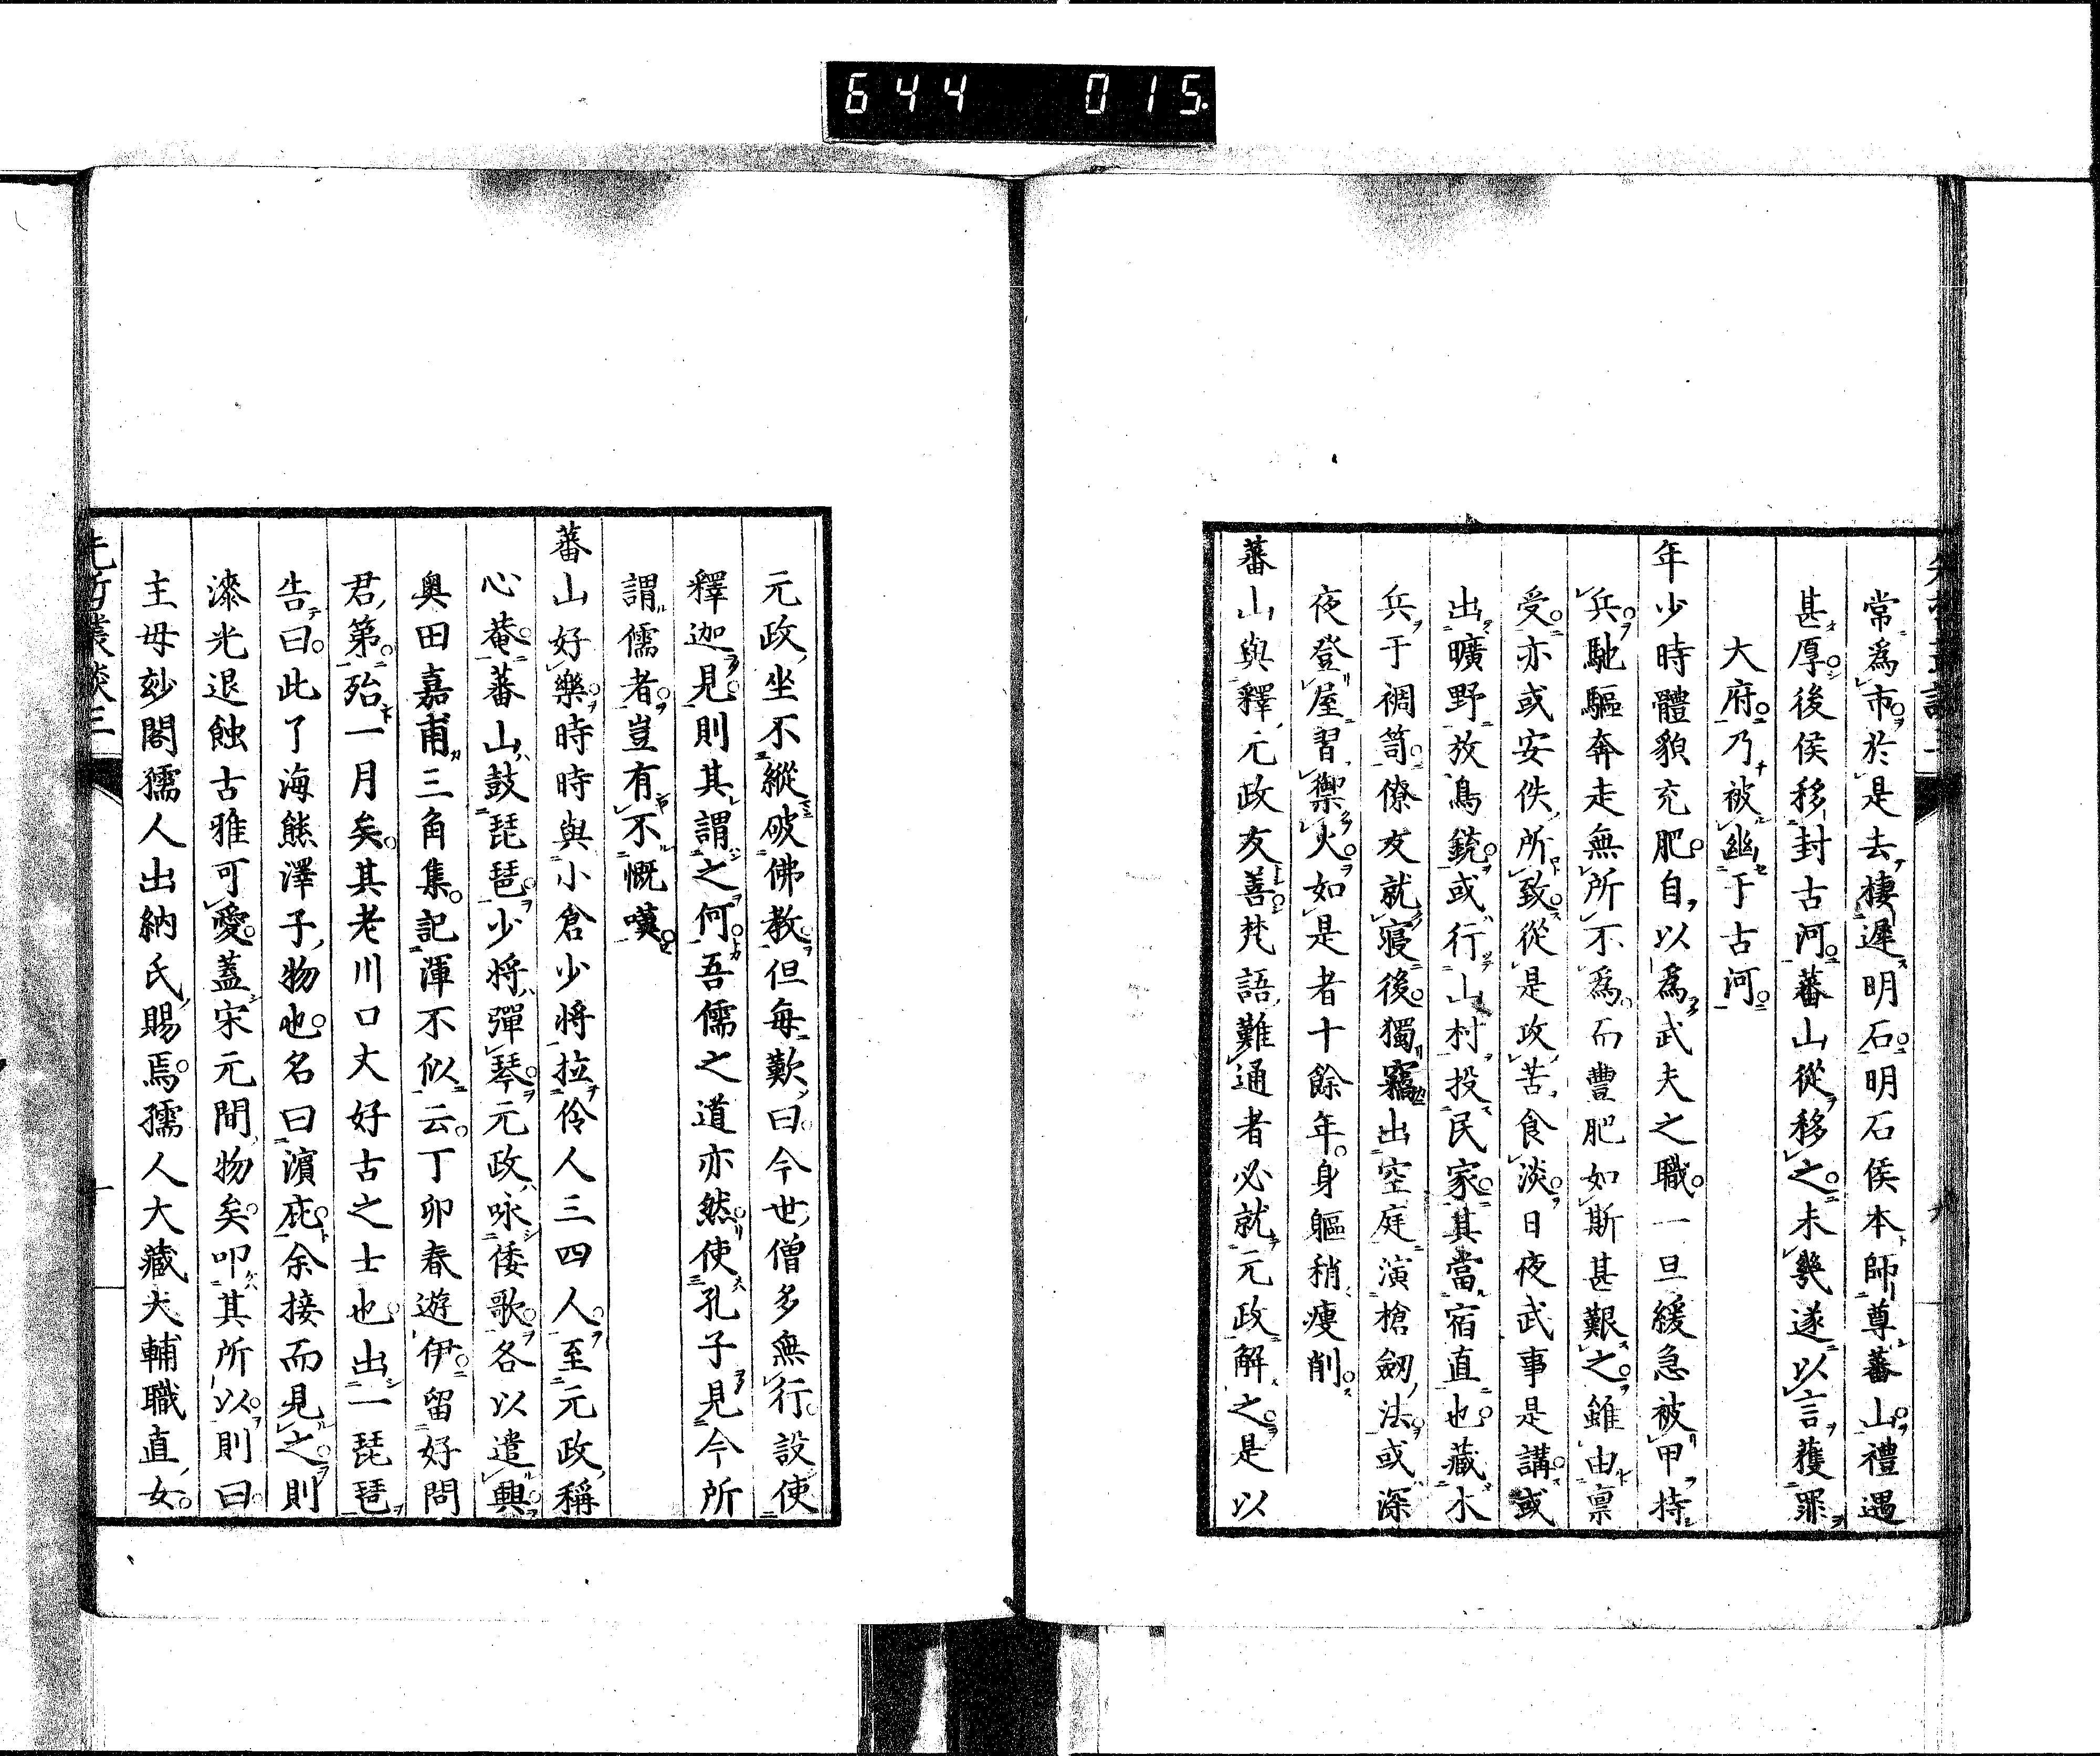 644 015
常爲市於是去棲遲明石明石侯本師尊蕃山禮遇
甚厚後侯移封古河蕃山從移之未幾遂以言獲罪
大府乃被幽于古河
年少時體貌充肥自以爲武夫之職一旦緩急被甲持
兵馳驅奔走無所不爲而豐肥如斯甚艱之雖由禀
受亦或安佚所致從是攻苦食淡日夜武事是講或
出曠野放鳥銃或行山村投民家其當宿直也藏木
兵于裯笥僚友就寢後獨竊出空庭演槍劒法或深
夜登屋習禦火如是者十餘年身軀稍瘦削
蕃山與釋元政友善梵語難通者必就元政解之是以
元政坐不縱破佛教但每歎曰今世僧多無行設使
釋迦見則其謂之何吾儒之道亦然使孔子見今所
謂儒者豈有不慨嘆
蕃山好樂時時與小倉少將拉伶人三四人至元政稱
心菴蕃山鼓琵琶少將彈琴元政咏倭歌各以遣興
奥田嘉甫三角集記渾不似云丁卯春遊伊留好問
君第殆一月矣其老川口丈好古之士也出一琵琶
告曰此了海熊澤子物也名曰濵庇余接而見之則
漆光退蝕古雅可愛蓋宋元間物矣叩其所以則曰
主母玅閣孺人出納氏賜焉孺人大藏大輔職直女
先哲叢談三